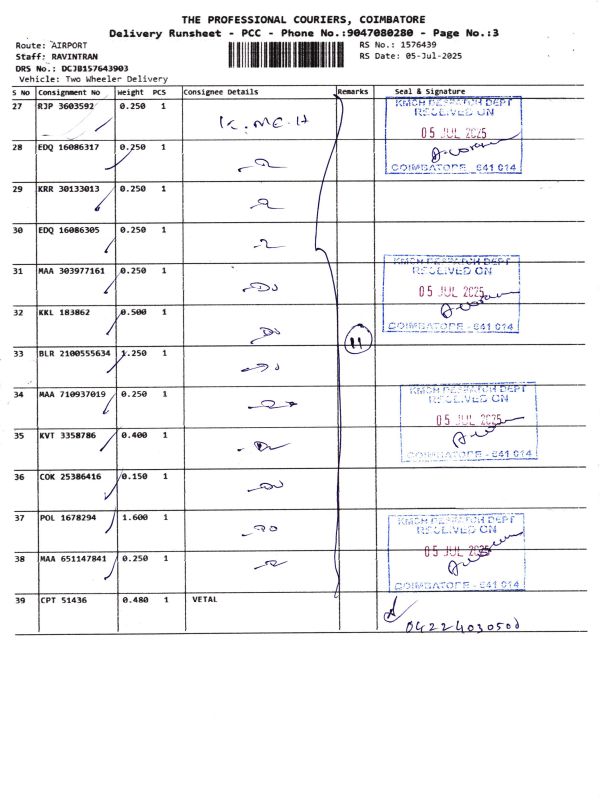 THE PROFESSIONAL COURIERS, COIMBATORE
Delivery Runsheet - PCC - Phone No.:9047080280 - Page No.:3
Route: AIRPORT
RS No.: 1576439
Staff: RAVINTRAN
RS Date: 05-Jul-2025
DRS No.: DCJB157643903
Vehicle: Two Wheeler Delivery
S No Consignment No Weight PCS Consignee Details Remarks Seal & Signature
27 RJP 3603592 0.250 1 K.MC.H
KMCH DESPATCH DEPT
RECEIVED ON
05 JUL 2025
COIMBATORE - 641 014
28 EDQ 16086317 0.250 1
29 KRR 30133013 0.250 1
30 EDQ 16086305 0.250 1
31 MAA 303977161 0.250 1
KMCH DESPATCH DEPT
RECEIVED ON
05 JUL 2025
COIMBATORE - 641 014
32 KKL 183862 0.500 1
11
33 BLR 2100555634 1.250 1
34 MAA 710937019 0.250 1
KMCH DESPATCH DEPT
RECEIVED ON
05 JUL 2025
COIMBATORE - 641 014
35 KVT 3358786 0.400 1
36 COK 25386416 0.150 1
37 POL 1678294 1.600 1
KMCH DESPATCH DEPT
RECEIVED ON
05 JUL 2025
COIMBATORE - 641 014
38 MAA 651147841 0.250 1
39 CPT 51436 0.480 1 VETAL
04224030500